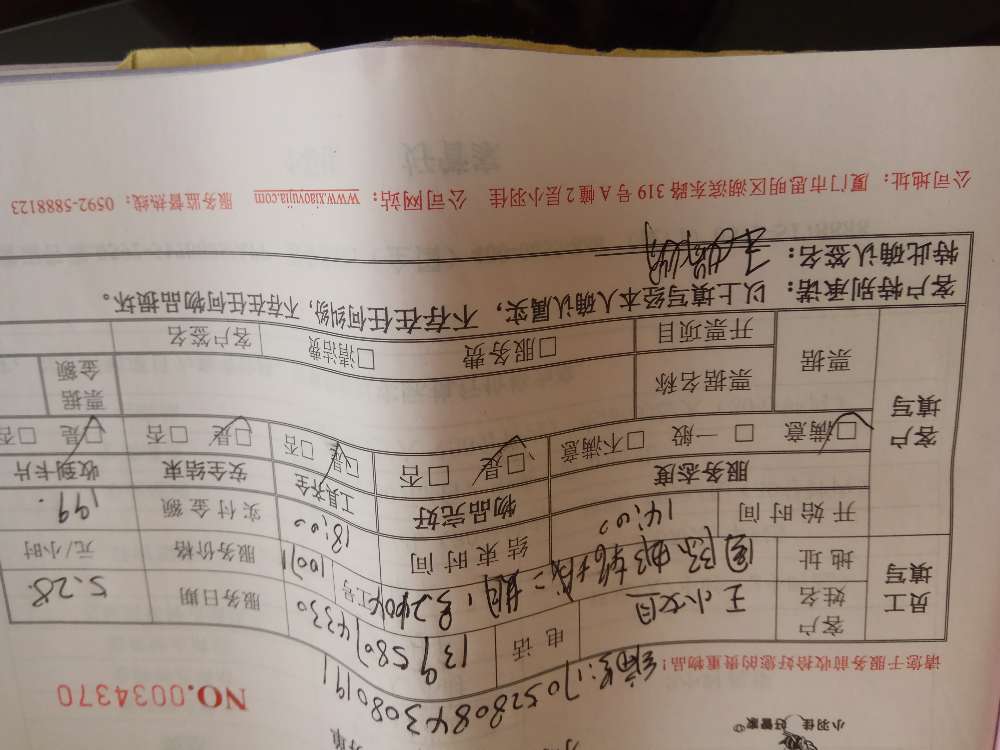 小羽佳 好管家
NO.0034370
请您于服务前收拾好您的贵重物品!
编号:170528084308091
员工填写
客户姓名 王小姐 电话 13958074330 服务日期 5.28.
地址 国际邮轮城二期1号2404 员工号 10071 服务价格 元/小时
开始时间 14:00 结束时间 18:00 实付金额 199.
客户填写
服务态度 物品完好 工具齐全 安全结束 收到卡片
□满意 □一般 □不满意 □是 □否 □是 □否 □是 □否 □是 □否
票据 票据名称 票据金额
开票项目 □服务费 □清洁费 客户签名
客户特别承诺: 以上填写经本人确认属实,不存在任何纠纷,不存在任何物品损坏。
特此确认签名:
公司地址: 厦门市思明区湖滨东路 319 号 A 幢 2 层小羽佳 公司网站: www.xiaoyujia.com 服务监督热线: 0592-5888123